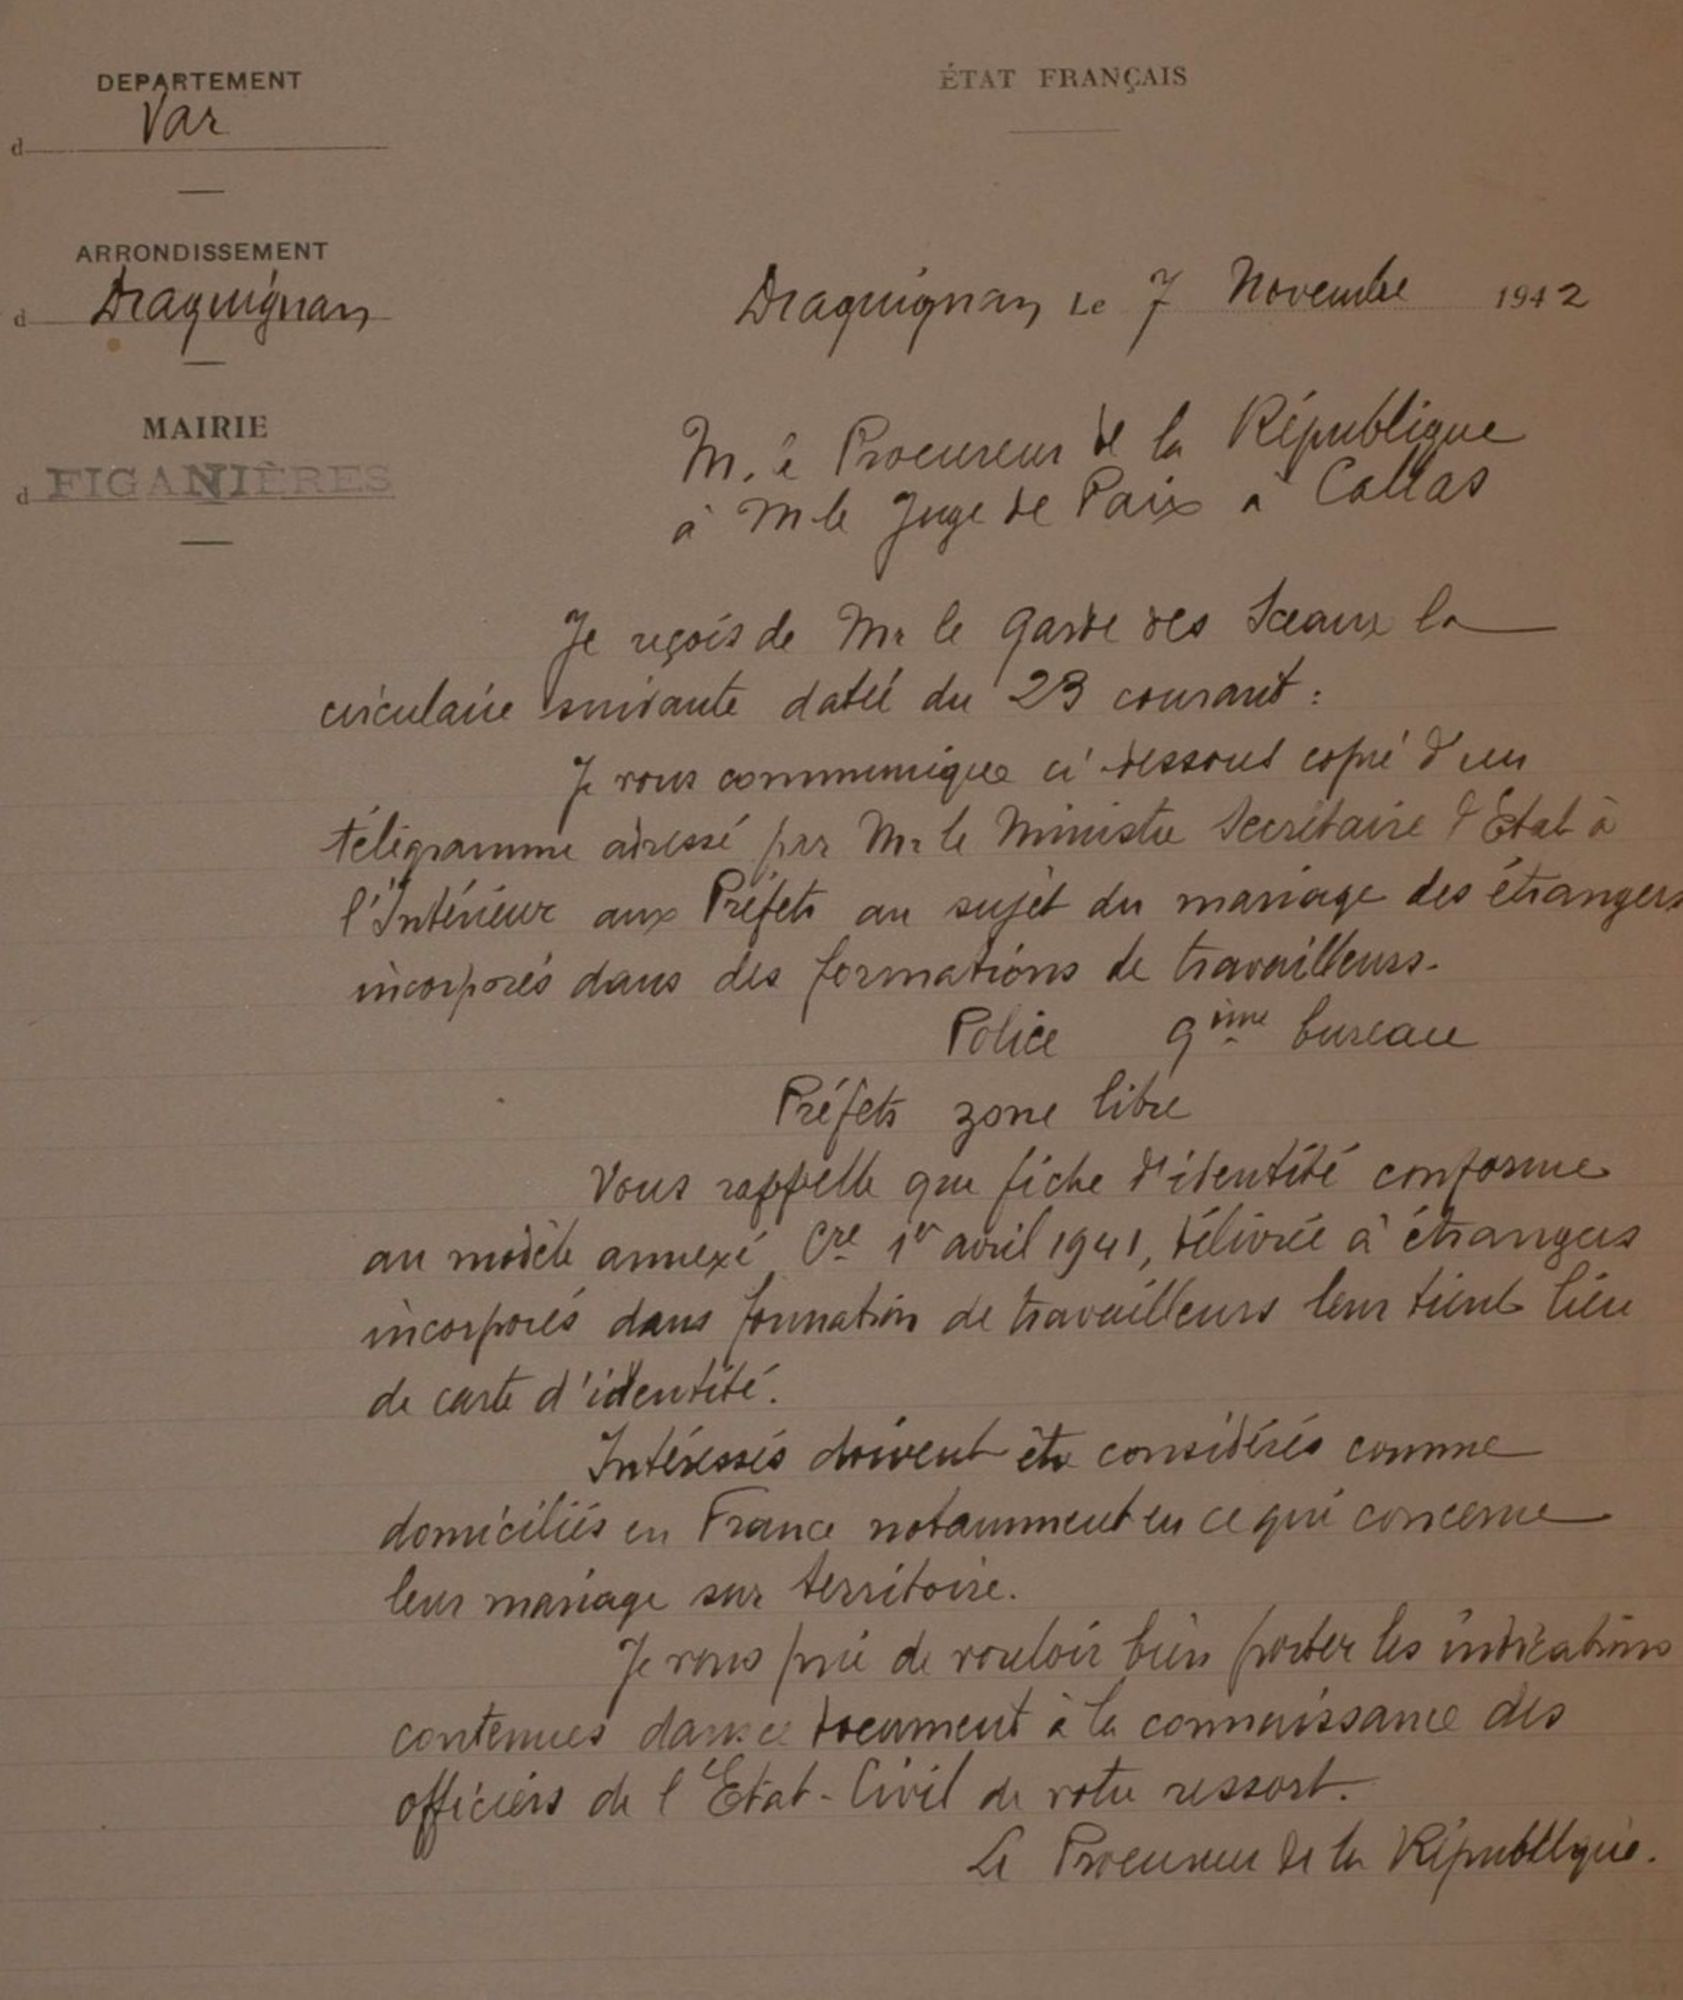 DEPARTEMENT
d Var
ARRONDISSEMENT
d Draguignan
MAIRIE
d FIGANIÈRES
ÉTAT FRANÇAIS
Draguignan Le 7 Novembre 1942
M. le Procureur de la République
à M. le Juge de Paix à Callas
Je reçois de Mr le Garde des Sceaux la
circulaire suivante datée du 23 courant :
Je vous communique ci-dessous copie d'un
télégramme adressé par Mr le Ministre Secrétaire d'Etat à
l'Intérieur aux Préfets au sujet du mariage des étrangers
incorporés dans des formations de travailleurs.
Police 9ème bureau
Préfets zone libre
Vous rappelle que fiche d'identité conforme
au modèle annexé Cre 1er avril 1941, délivrée à étrangers
incorporés dans formation de travailleurs leur tient lieu
de carte d'identité.
Intéressés doivent être considérés comme
domiciliés en France notamment en ce qui concerne
leur mariage sur territoire.
Je vous prie de vouloir bien porter les indications
contenues dans ce document à la connaissance des
officiers de l'Etat-Civil de votre ressort.
Le Procureur de la République.